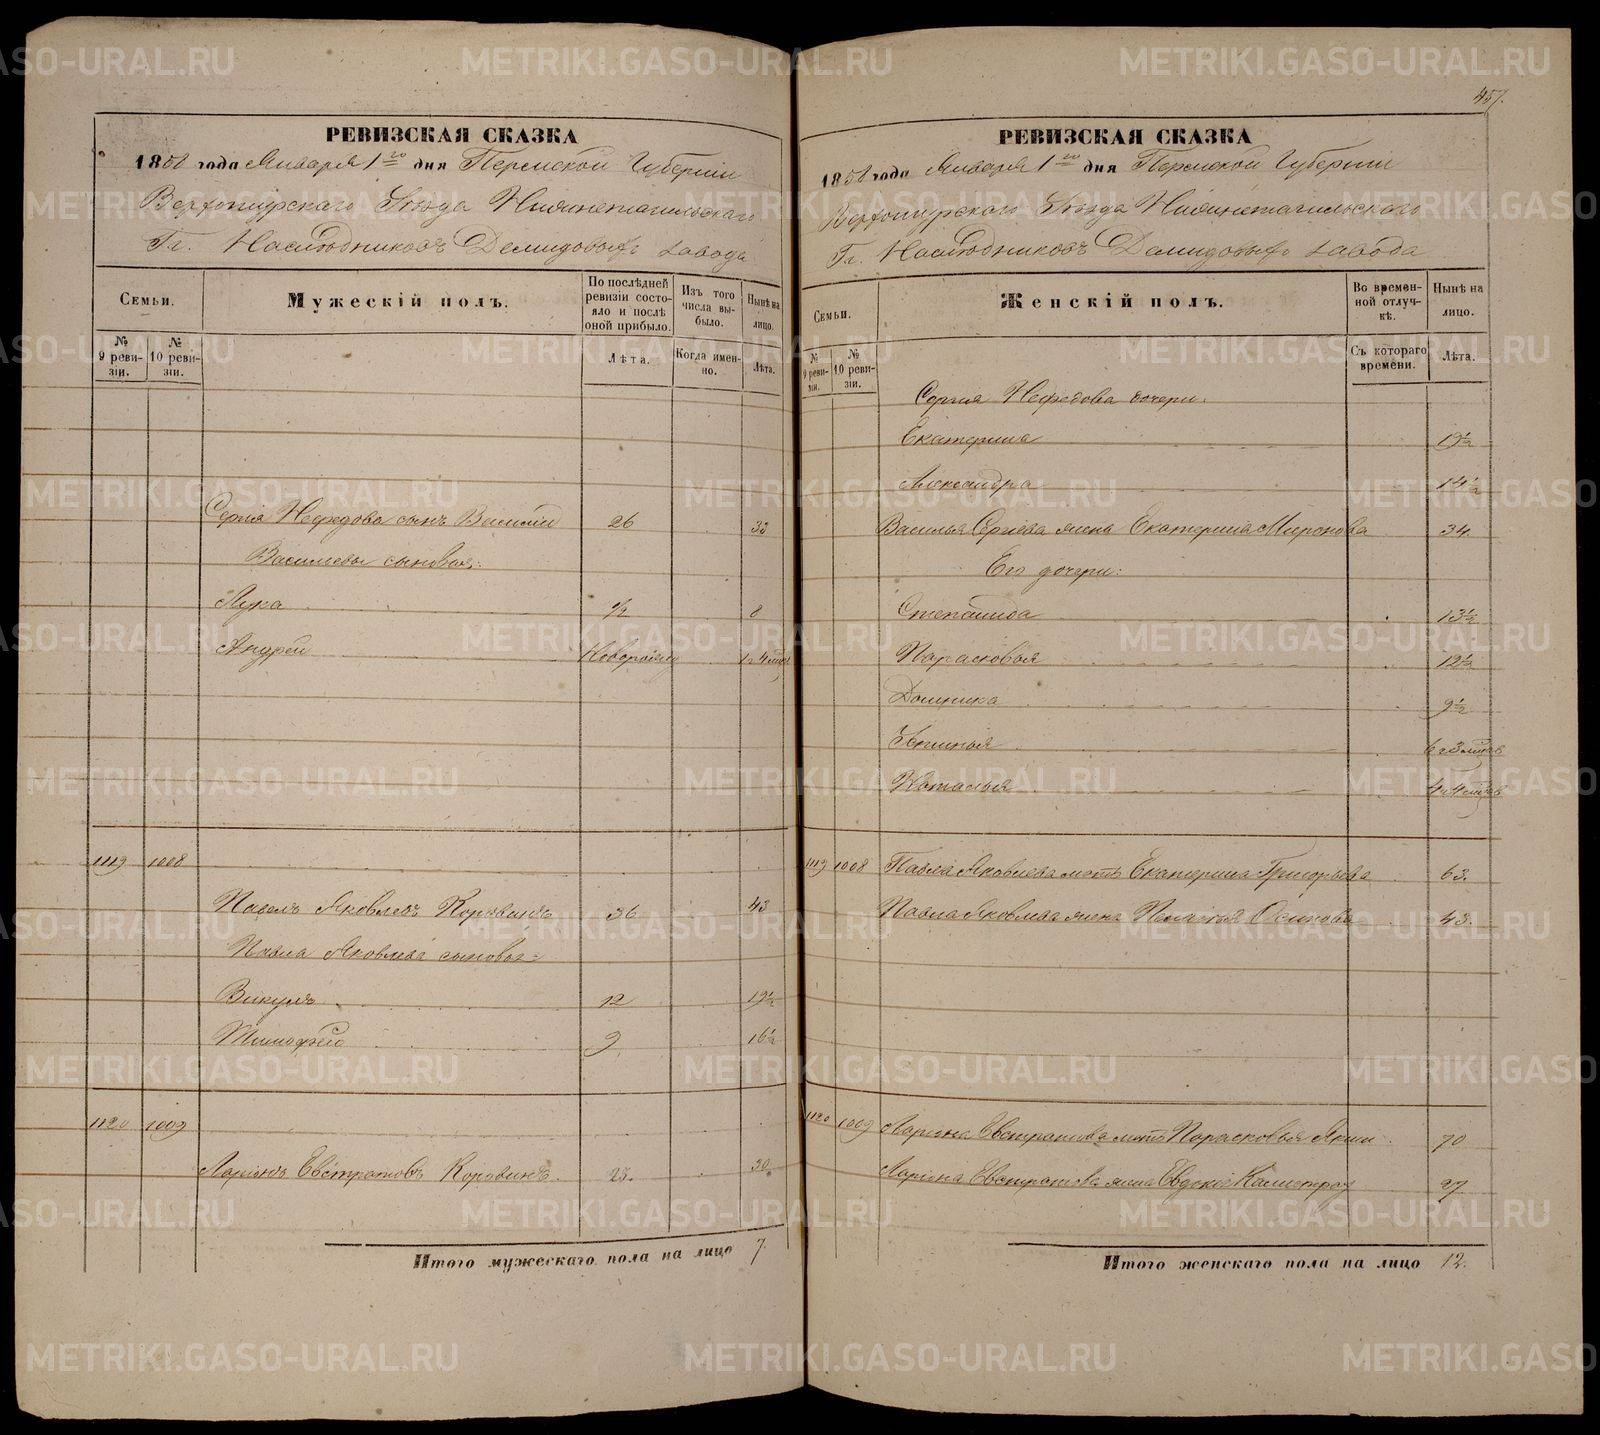 457.
РЕВИЗСКАЯ СКАЗКА
1858 года Января 1го дня Пермской Губерніи
Верхотурскаго Уѣзда Нижнетагильскаго
Гг. Наслѣдниковъ Демидовыхъ завода
Семьи.
Мужескій полъ.
По послѣдней ревизіи состояло и послѣ оной прибыло.
Изъ того числа выбыло.
Нынѣ на лицо.
№ 9 ревизіи.
№ 10 ревизіи.
Лѣта.
Когда именно.
Лѣта.
Сергія Нефедова сынъ Василій 26 33
Васильевы сыновья:
Лука 1/2 8
Андрей 1 г 4 мѣс
1119 1008
Павелъ Яковлевъ Коровинъ 36 43
Павла Яковлева сыновья=
Викулъ 12 19 1/2
Тимофей 9 16 1/2
1120 1009
Ларіонъ Евстратовъ Коровинъ 23. 30.
Итого мужескаго пола на лицо 7.
РЕВИЗСКАЯ СКАЗКА
1858 года Января 1го дня Пермской Губерніи
Верхотурскаго Уѣзда Нижнетагильскаго
Гг. Наслѣдниковъ Демидовыхъ завода
Семьи.
Женскій полъ.
Во временной отлучкѣ.
Нынѣ на лицо.
№ 9 ревизіи.
№ 10 ревизіи.
Съ котораго времени.
Лѣта.
Сергія Нефедова дочери:
Екатерина 19 1/2
Александра 14 1/2
Василья Сергіева жена Екатерина Миронова 34.
Его дочери:
Степанида 13 1/2
Парасковья 12 1/2
Домника 9 1/2
6 г 3 мѣс
Наталья 4 г 4 мѣс
1119 1008 Павла Яковлева мать Екатерина Григорьева 63.
Павла Яковлева жена Пелагея Осипова 43.
1120 1009 Ларіона Евстратова мать Парасковья 70
Ларіона Евстратова жена 27
Итого женскаго пола на лицо 12.
METRIKI.GASO-URAL.RU